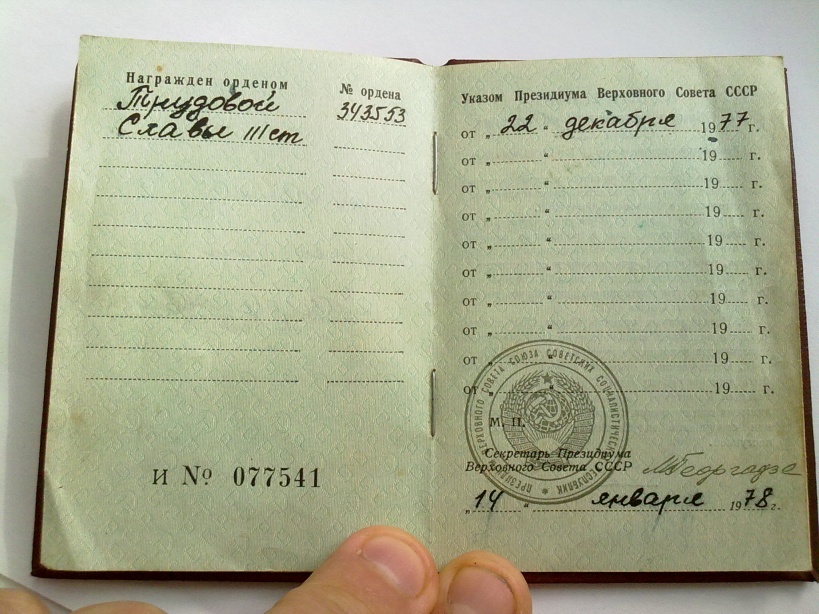 Награжден орденом
№ ордена
Трудовой
343553
Славы III ст
И № 077541
Указом Президиума Верховного Совета СССР
от „ 22 “ декабря 1977 г.
от „ “ 19 г.
от „ “ 19 г.
от „ “ 19 г.
от „ “ 19 г.
от „ “ 19 г.
от „ “ 19 г.
от „ “ 19 г.
от „ “ 19 г.
от „ “ 19 г.
от „ “ 19 г.
ПРЕЗИДИУМ ВЕРХОВНОГО СОВЕТА СОЮЗА СОВЕТСКИХ СОЦИАЛИСТИЧЕСКИХ РЕСПУБЛИК
М. П.
Секретарь Президиума
Верховного Совета СССР
М Георгадзе
„14 “ января 1978 г.